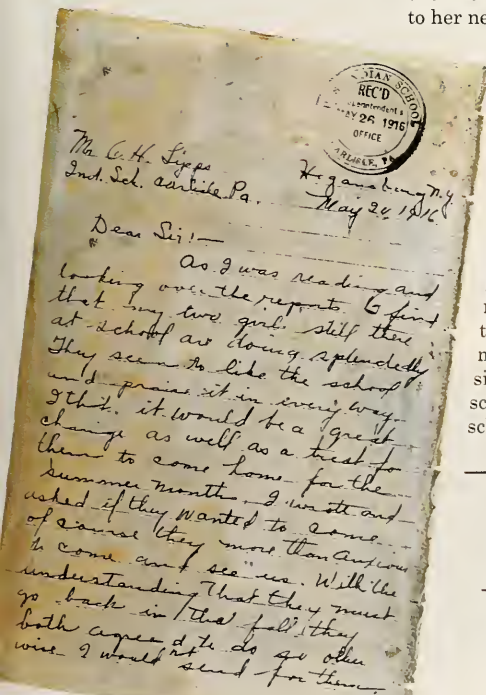 to her ne
INDIAN SCHOOL
REC'D
Superintendent's
MAY 26 1916
OFFICE
CARLISLE, PA
Mr O. H. Lipps
Ind. Sch. Carlisle Pa.
Hogansburg N.Y.
May 24, 1916
Dear Sir!—
As I was reading and
looking over the reports I find
that my two girls still there
at school are doing splendedly
They seem to like the school
and praise it in every way
I that it would be a great
change as well as a treat for
them to come home for the
summer months I wrote and
asked if they wanted to come
of course they more than anxious
to come and see us. With the
understanding that they must
go back in the fall, they
both agreed to do so other
wise I wouldn't send for them
n
t
n
si
sc
sc